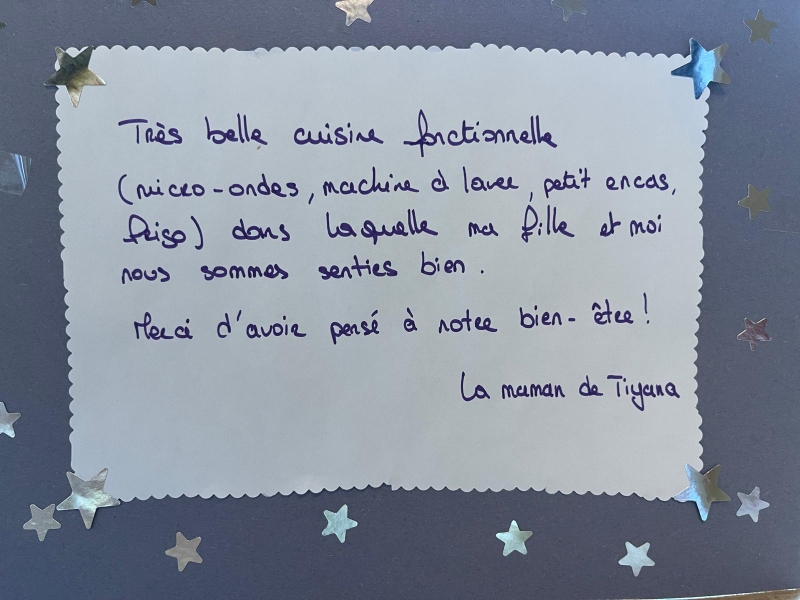 Très belle cuisine fonctionnelle
(micro-ondes, machine à laver, petit encas,
frigo) dans laquelle ma fille et moi
nous sommes senties bien.
Merci d'avoir pensé à notre bien-être!
La maman de Tiyana